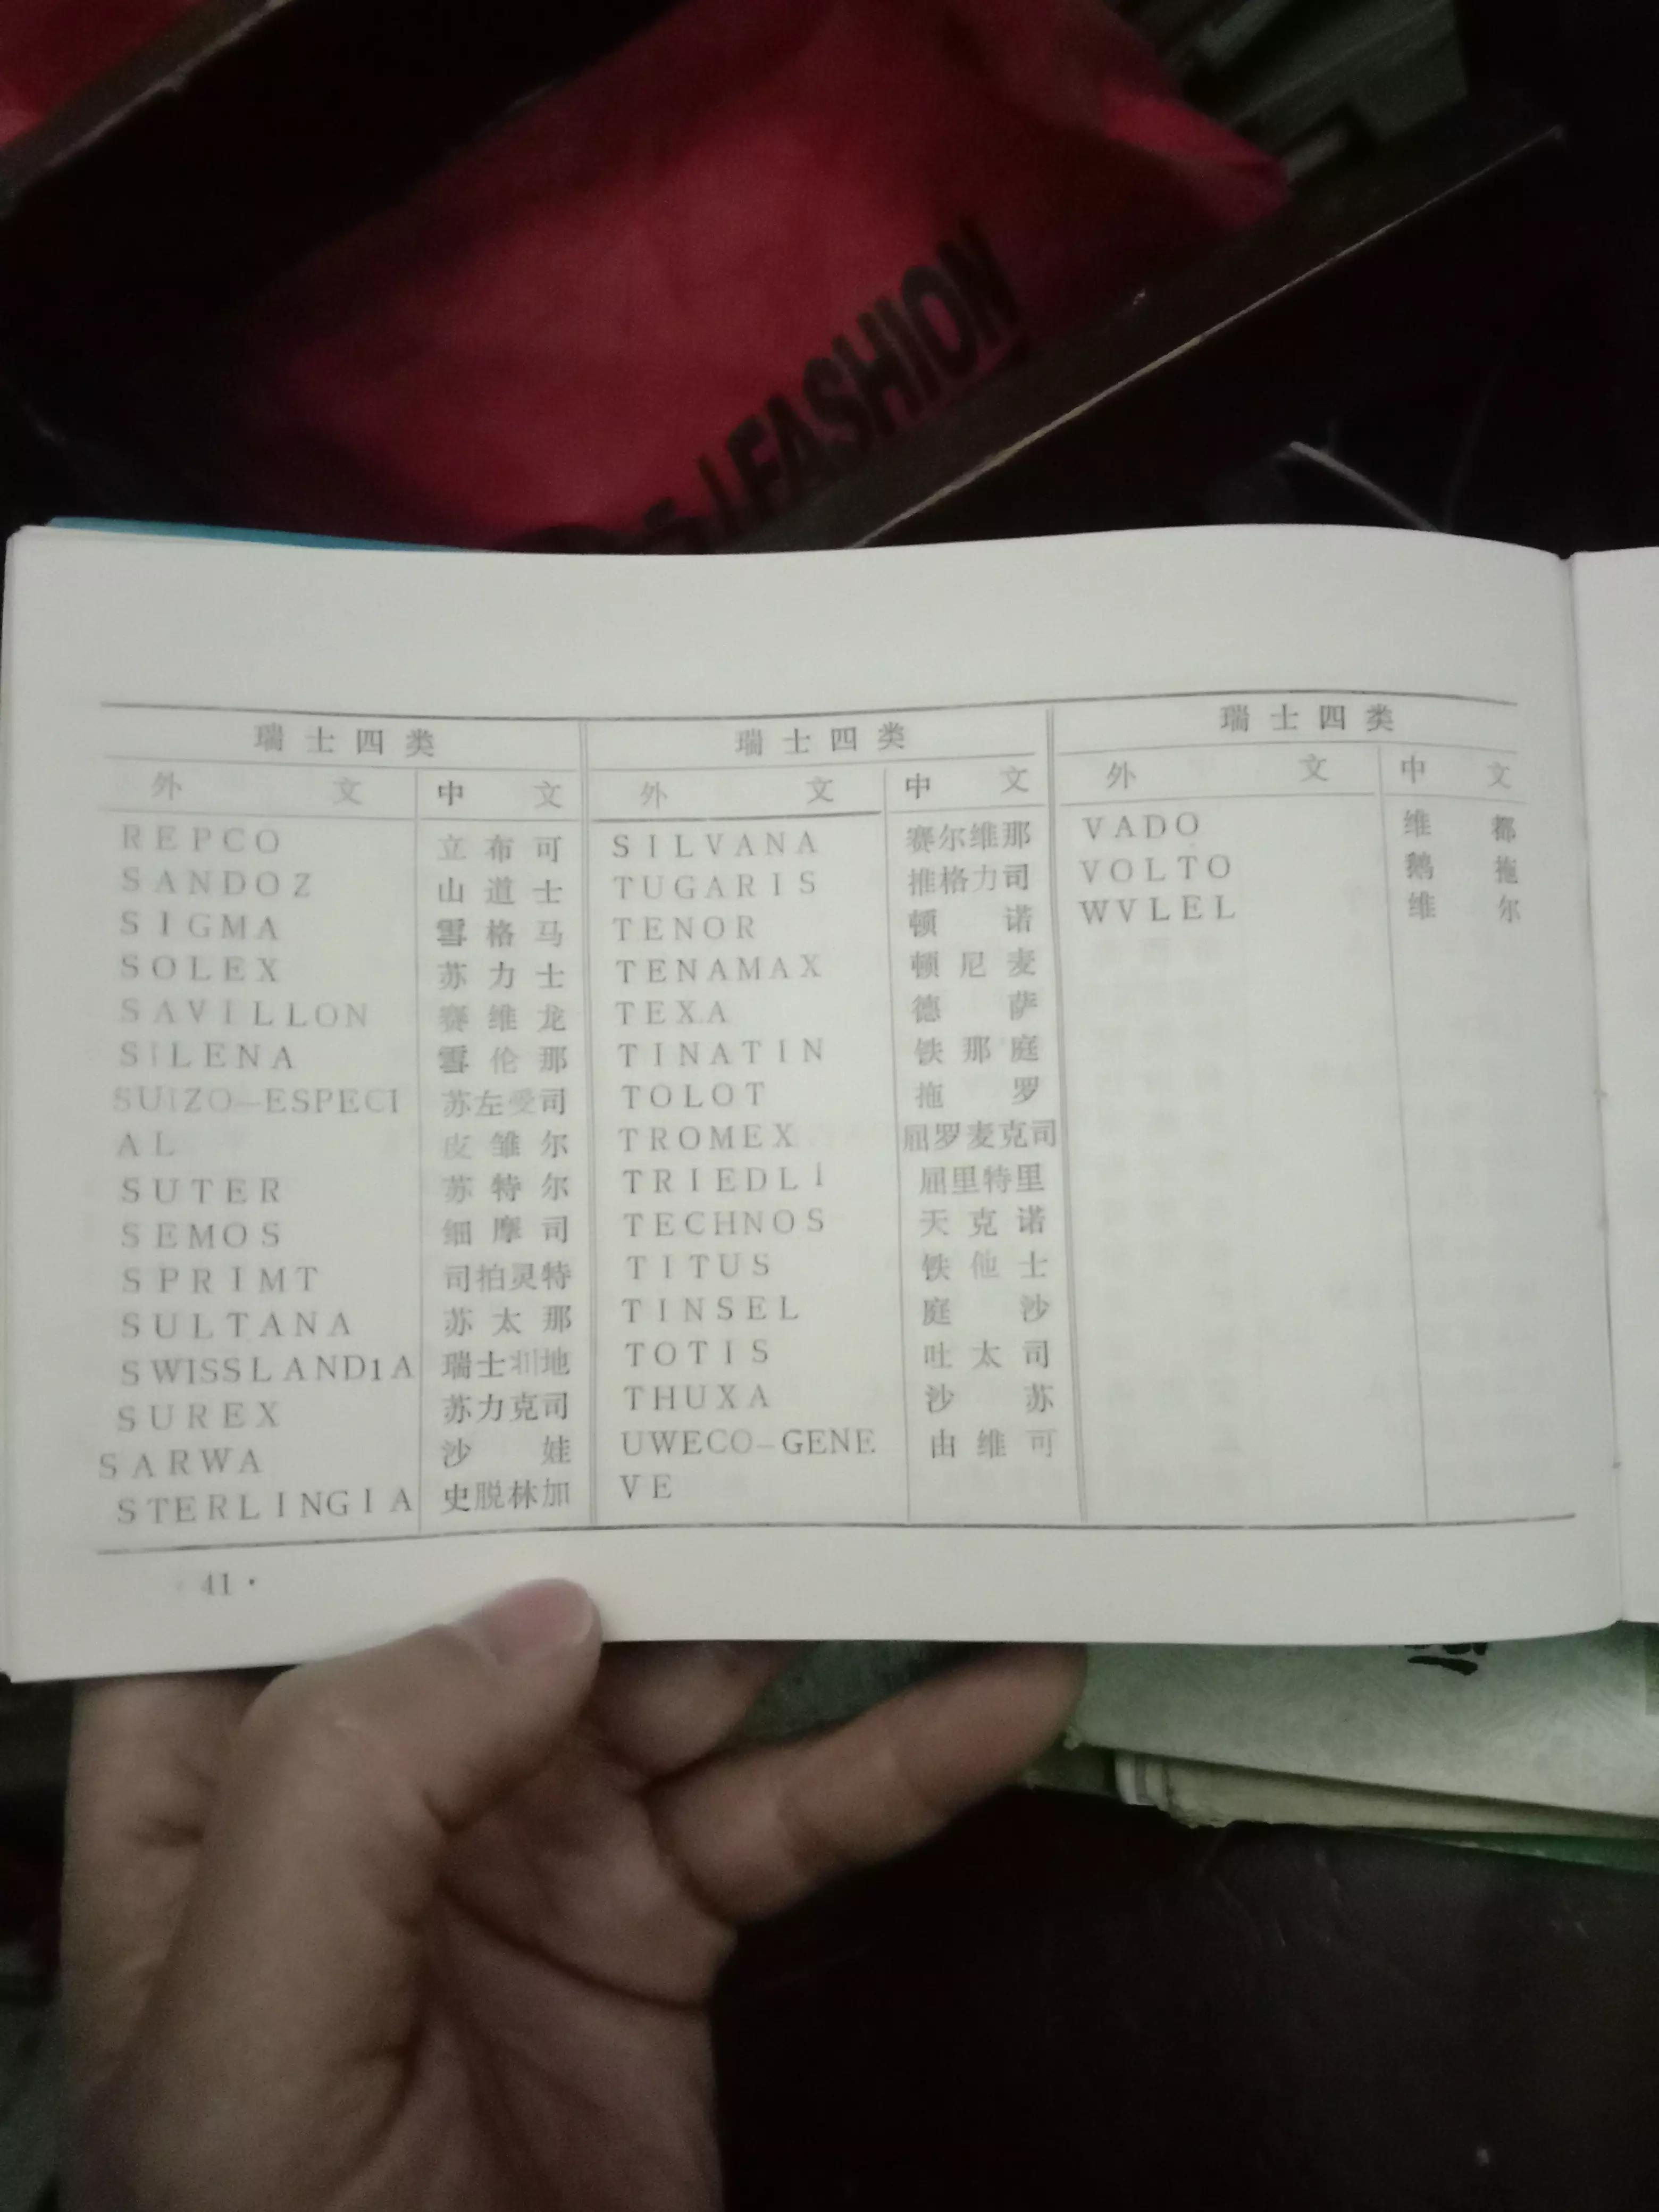 FASHION
瑞士四类 瑞士四类 瑞士四类
外文 中文 外文 中文 外文 中文
REPCO 立布可 SILVANA 赛尔维那 VADO 维都
SANDOZ 山道士 TUGARIS 推格力司 VOLTO 鹅拖
SIGMA 雪格马 TENOR 顿诺 WVLEL 维尔
SOLEX 苏力士 TENAMAX 顿尼麦
SAVILLON 赛维龙 TEXA 德萨
SILENA 雪伦那 TINATIN 铁那庭
SUIZO—ESPECI 苏左爱司 TOLOT 拖罗
AL 皮雏尔 TROMEX 屈罗麦克司
SUTER 苏特尔 TRIEDLI 屈里特里
SEMOS 细摩司 TECHNOS 天克诺
SPRIMT 司拍灵特 TITUS 铁他士
SULTANA 苏太那 TINSEL 庭沙
SWISSLAND1A 瑞士地 TOTIS 吐太司
SUREX 苏力克司 THUXA 沙苏
SARWA 沙娃 UWECO—GENE 由维可
STERLINGIA 史脱林加 VE
· 41 ·